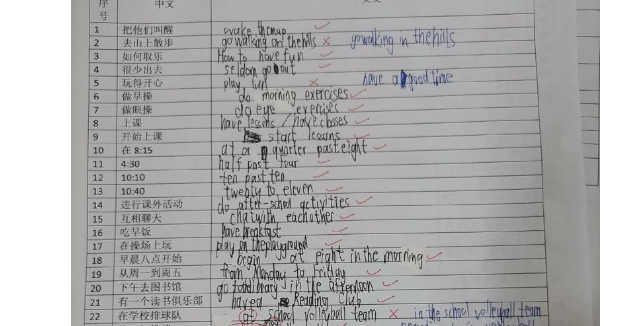 序号 中文
1 把他们叫醒 wake themup
2 去山上散步 go walking on thehills × gowalking in thehills
3 如何取乐 How to have fun
4 很少出去 seldom go out
5 玩得开心 play fun × have a good time
6 做早操 do morning exercises
7 做眼操 do eye exercises
8 上课 have lessons / have classes
9 开始上课 start lessons
10 在 8:15 at a quarter past eight
11 4:30 half past four
12 10:10 ten past ten
13 10:40 twenty to eleven
14 进行课外活动 do after-school activities
15 互相聊天 chatwith eachother
16 吃早饭 have breakfast
17 在操场上玩 play on theplayground
18 早晨八点开始 at eight in the morning
19 从周一到周五 from Monday to Friday
20 下午去图书馆 in the afternoon
21 有一个读书俱乐部 have a Reading club
22 在学校排球队 at school volleyball team × in the school volleyball team